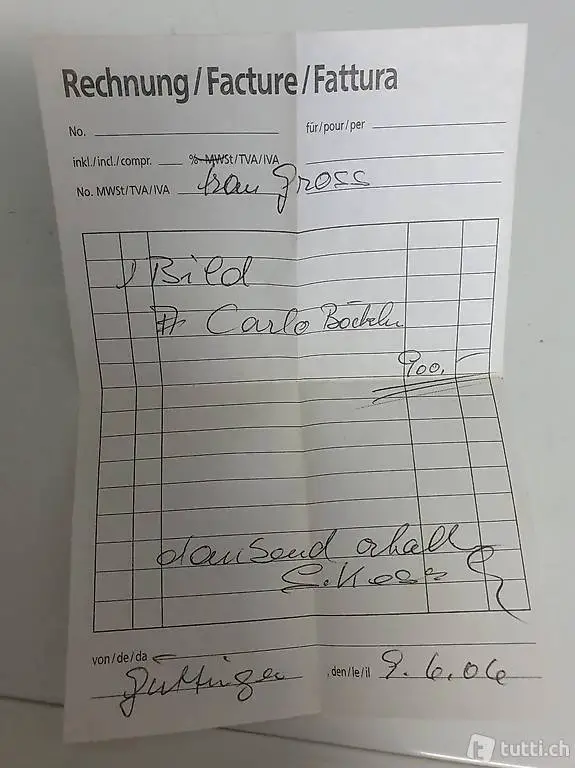 Rechnung/Facture/Fattura
No.
für/pour/per
inkl./incl./compr. % MWSt/TVA/IVA
No. MWSt/TVA/IVA
Frau Gross
1 Bild
Carlo Böcklin
900.-
dankend erhalten
von/de/da
Güttingen , den/le/il 9.6.06
tutti.ch